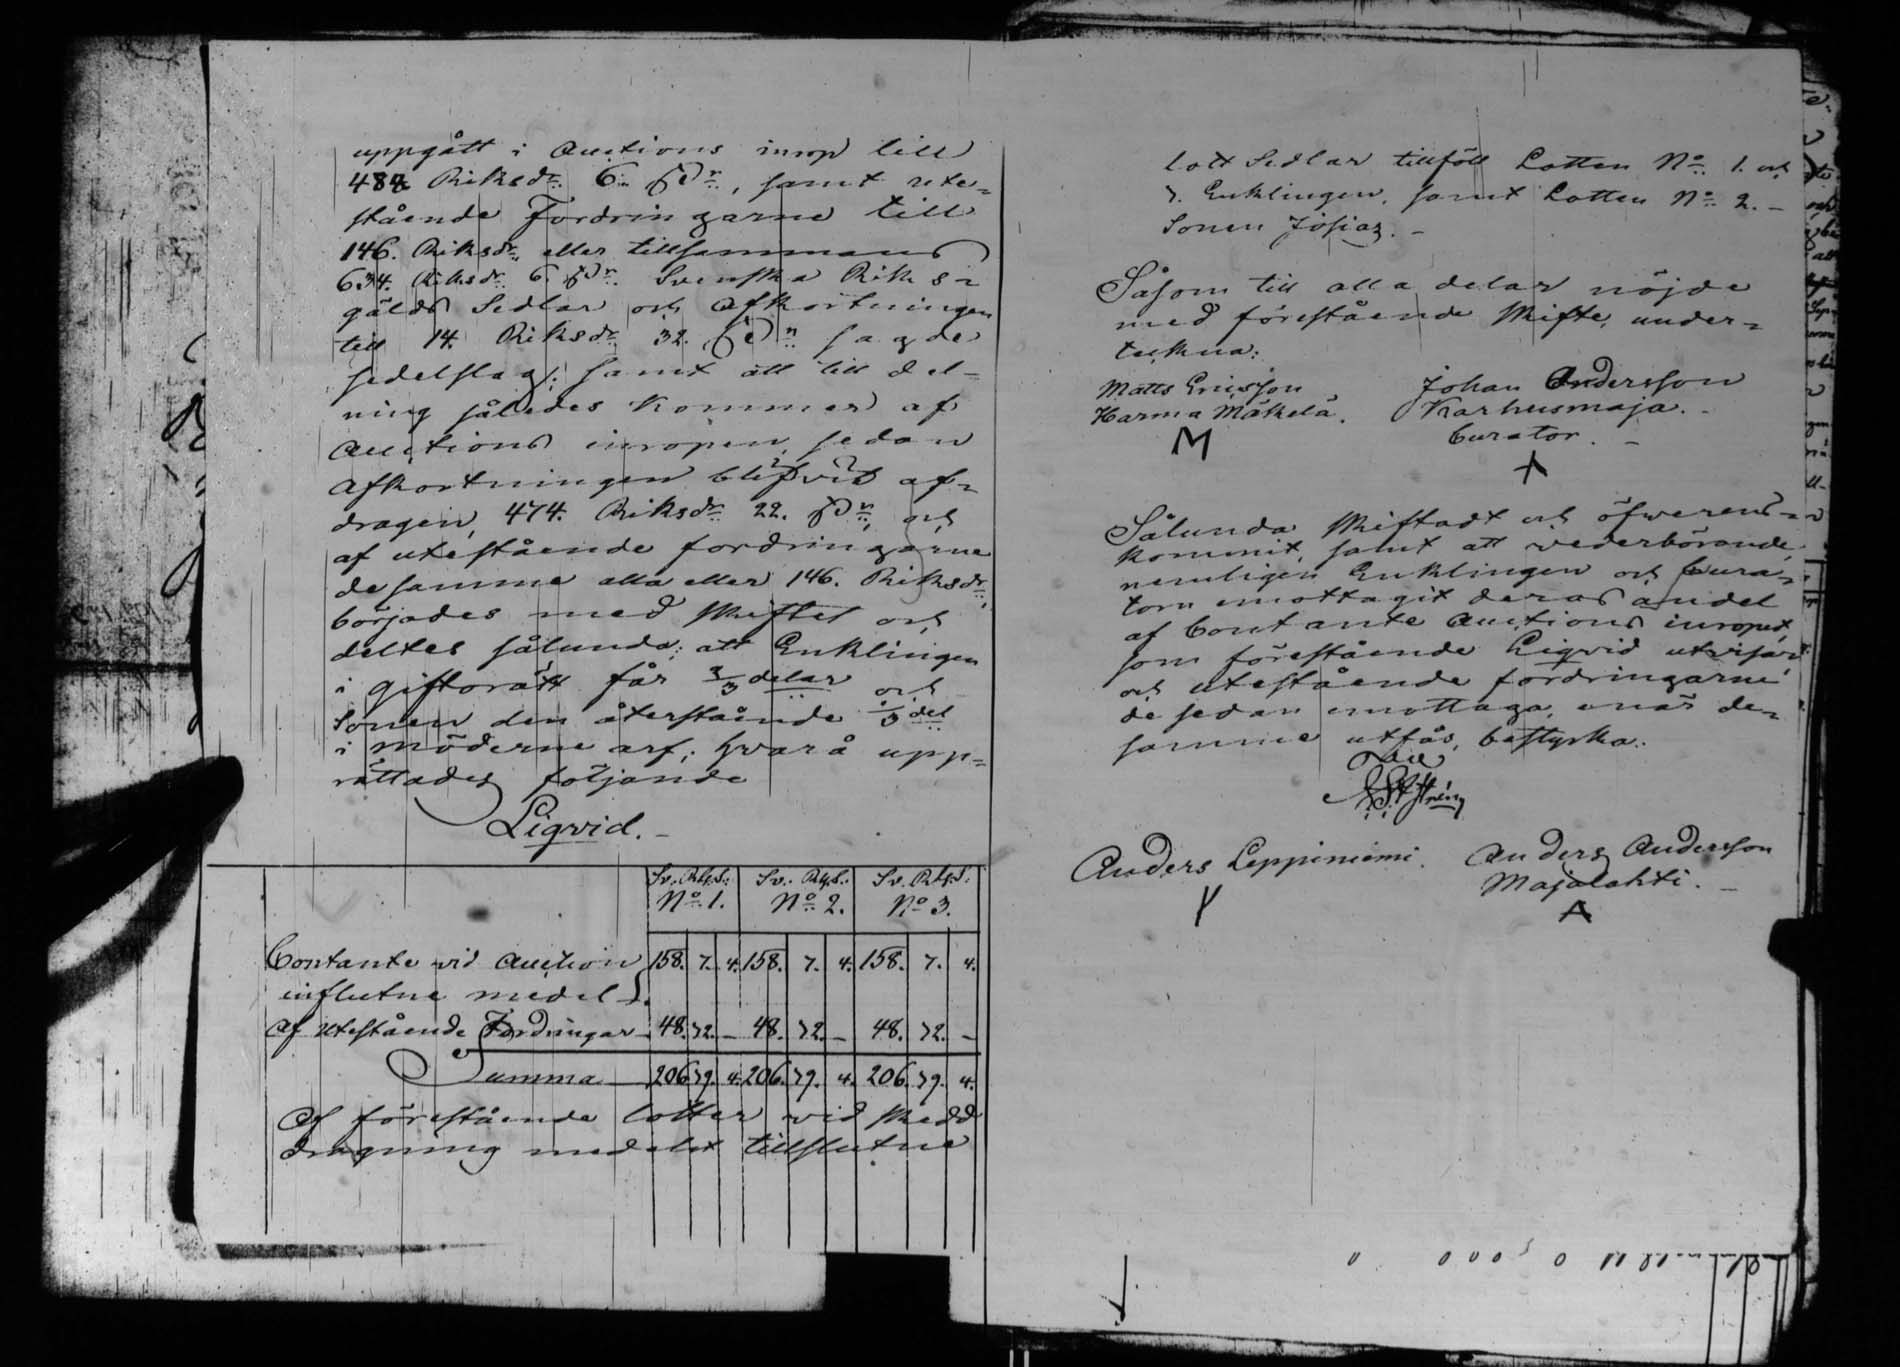 uppgått i Auctions inrop till
488 Riksdr. 6 sk:n, samt ute-
stående Fordringarne till
146. Riksdr. eller tillsammans
634. Riksdr. 6. sk:n. Svenska Riks-
gälds Sedlar och Afkortningen
till 14. Riksdr. 32. sk:n sagde
sedelslag; samt att till del-
ning således kommer af
Auctions inropen, sedan
Afkortningen blifvit af-
dragen, 474. Riksdr. 22. sk:n, och
af utestående fordringarne
desamme alla eller 146. Riksdr.,
börjades med skiftet och
deltes sålunda; att Enklingen
i giftorätt får 2/3 delar och
Sonen den återstående 1/3 del
i möderne arf; hvarå upp-
rättades följande
Liqvid.
Sv. Rgs. Sv. Rgs. Sv. Rgs.
No 1. No 2. No 3.
Contante vid Auction 158. 7. 4. 158. 7. 4. 158. 7. 4.
influtne medel
Af Utestående Fordringar 48. 32. - 48. 32. - 48. 32. -
Summa 206. 39. 4. 206. 39. 4. 206. 39. 4.
Af förestående lotter vid skedd
dragning medelst tillslutne
lott Sedlar tillföll Lotten No 1. och
3. Enklingen, samt Lotten No 2.-
Sonen Josias.-
Såsom till alla delar nöjde
med förestående skifte, under-
teckna:
Matts Ericsson Johan Andersson
Harma Mäkelä. Karhusmaja.-
Curator.-
Sålunda skiftadt och öfverens-
kommit, samt att vederbörande
nemligen Enklingen och Cura-
torn emottagit deras andel
af Contante Auctions inropet,
som förestående Liqvid utvisar
och utestående fordringarne
de sedan emottaga, när de-
samme utfås, bestyrka.
Anders Leppiniemi. Anders Andersson
Majalahti.-